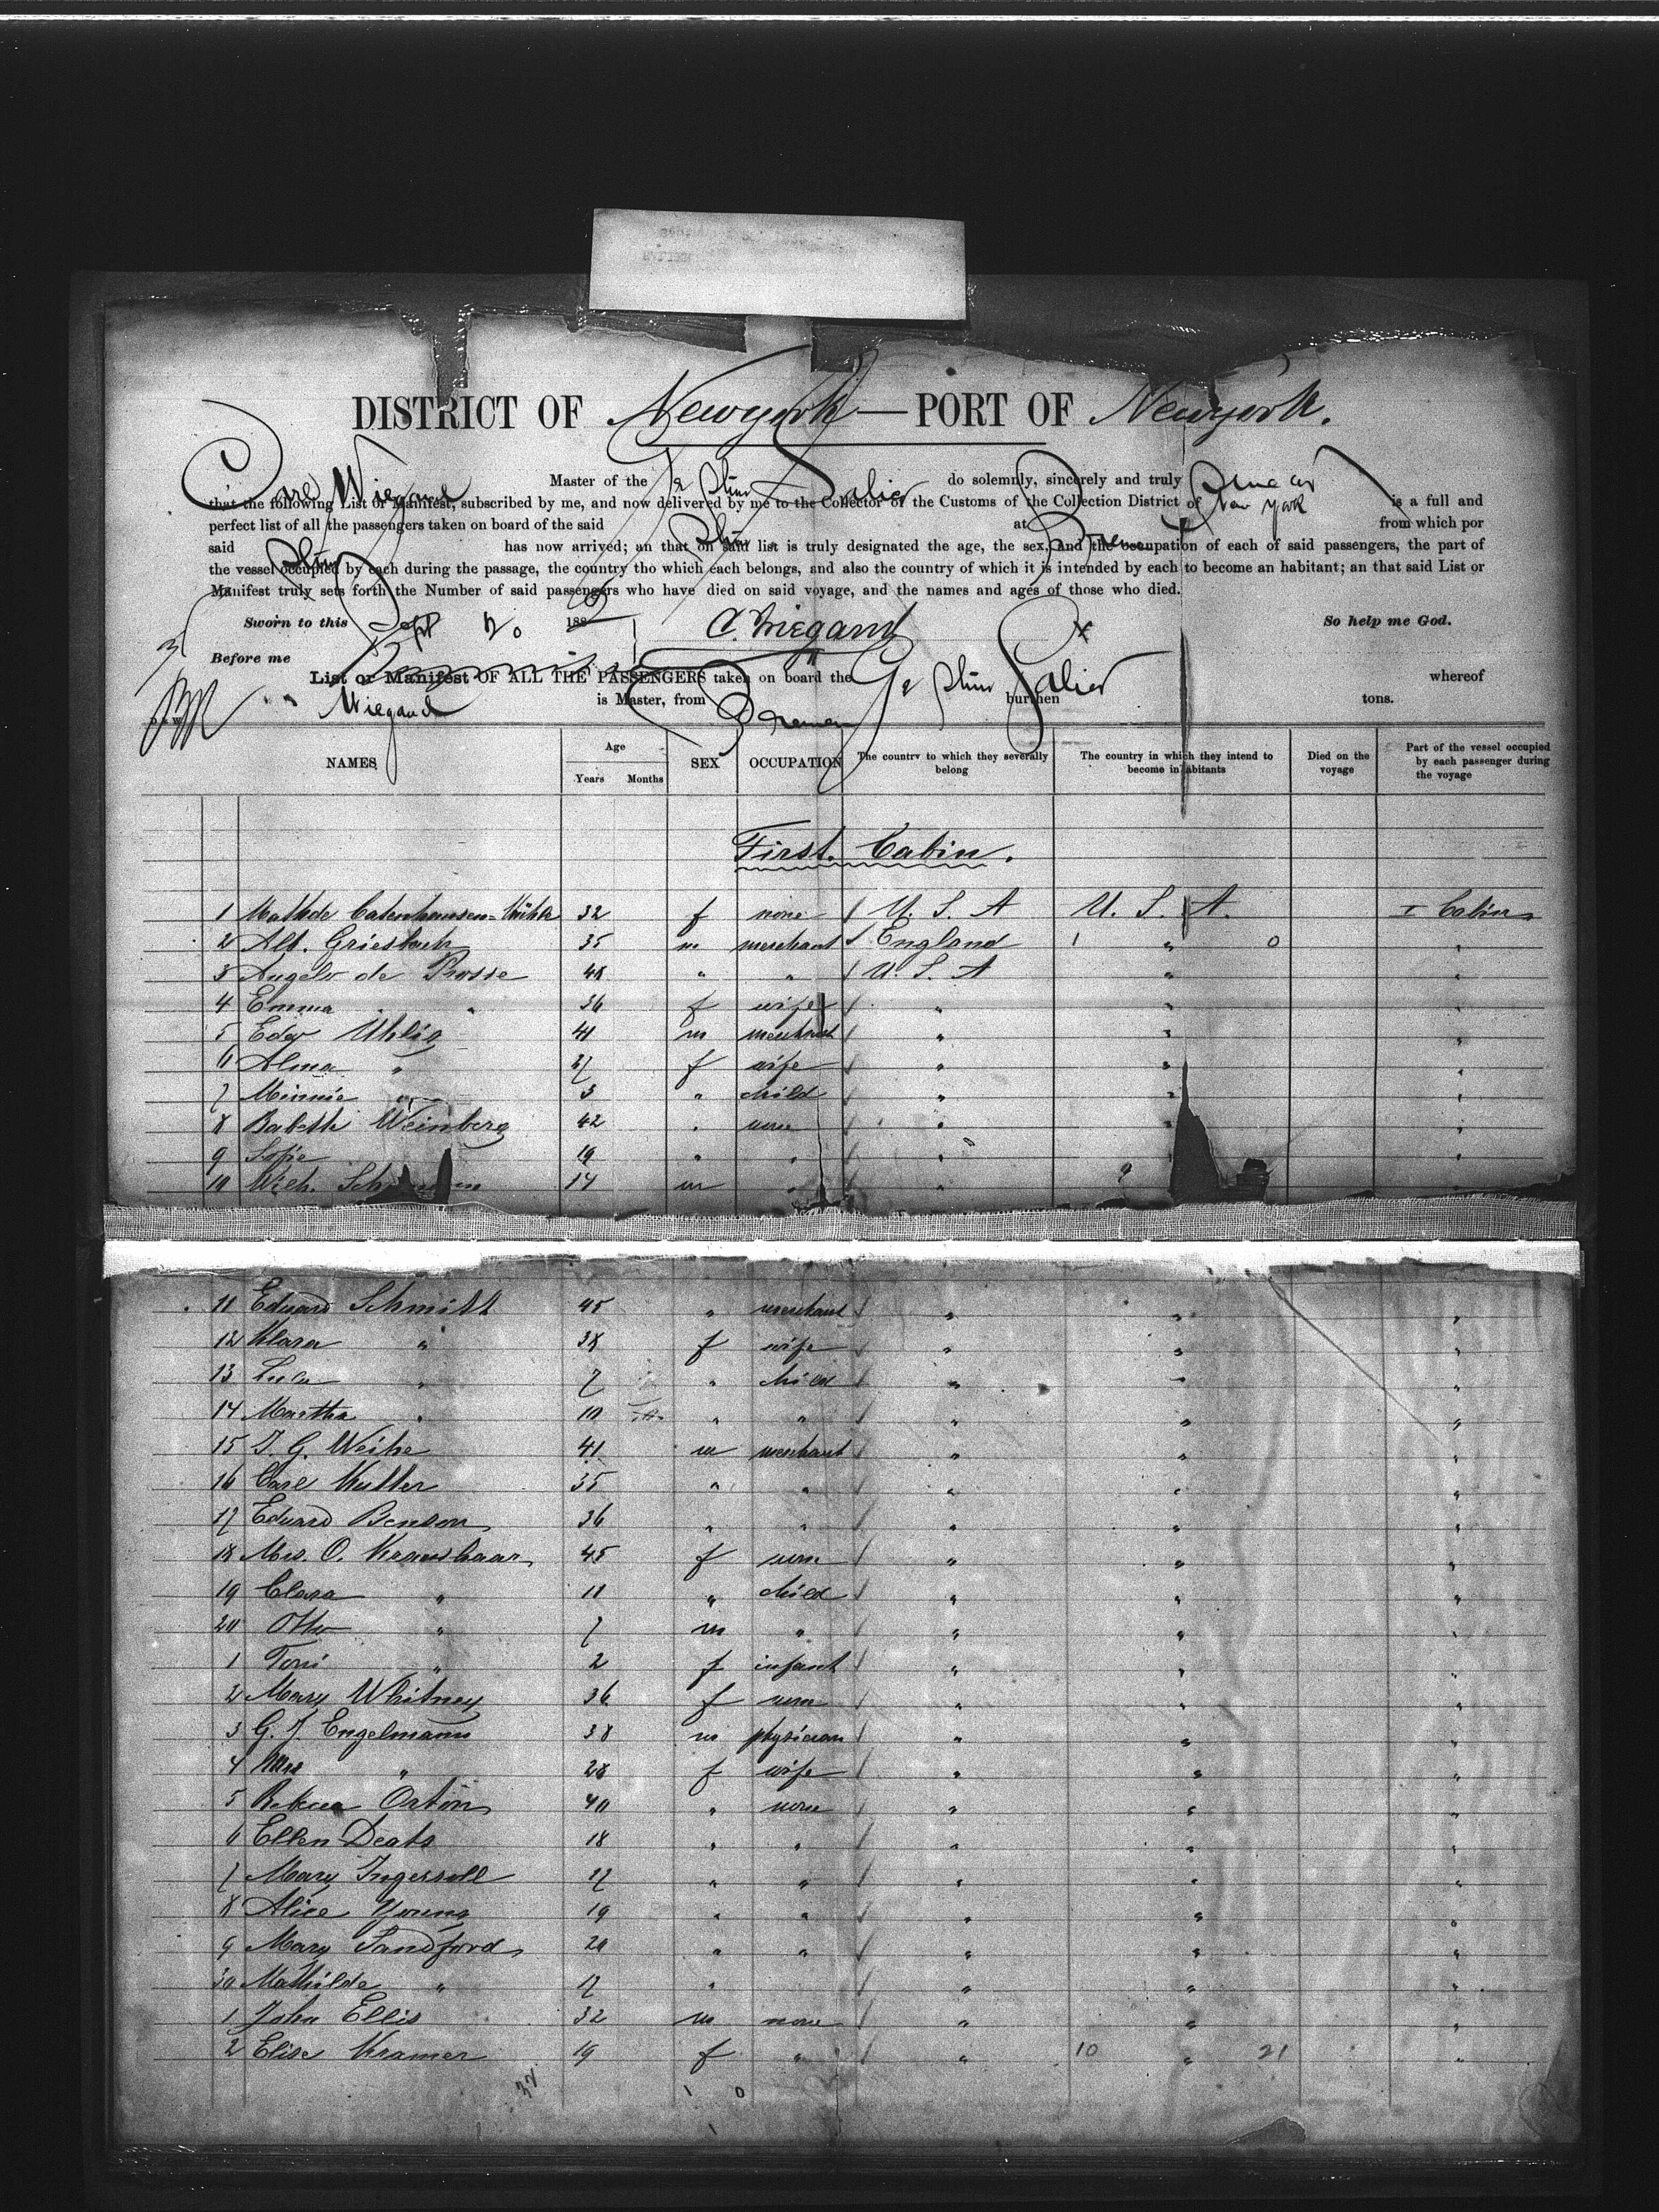 DISTRICT OF Newyork — PORT OF Newyork.
Carl Wiegand Master of the Ge Stmr Salier do solemnly, sincerely and truly Swear
that the following List or Manifest, subscribed by me, and now delivered by me to the Collector of the Customs of the Collection District of New York is a full and
perfect list of all the passengers taken on board of the said Stmr at Bremen from which por
said Stmr has now arrived; an that on said list is truly designated the age, the sex, and the occupation of each of said passengers, the part of
the vessel occupied by each during the passage, the country tho which each belongs, and also the country of which it is intended by each to become an habitant; an that said List or
Manifest truly sets forth the Number of said passengers who have died on said voyage, and the names and ages of those who died.
Sworn to this Sept 20 188 C. Wiegand So help me God.
Before me
List or Manifest OF ALL THE PASSENGERS taken on board the Ge Stmr Salier whereof
Wiegand is Master, from Bremen burthen tons.
NAMES Age Years Months SEX OCCUPATION The country to which they severally belong The country in which they intend to become inhabitants Died on the voyage Part of the vessel occupied by each passenger during the voyage
First Cabin.
1 Mathde Catenhausen= 32 f none U. S. A U. S. A. I Cabin
2 Alb. Griesbach 35 m merchant England 1 " 0 "
3 Angelo de 48 " " U. S. A " "
4 Emma " " 36 f wife " " "
5 Edw Uhlig 41 m merchant " " "
6 Alma " 27 f wife " " "
7 Minnie " 3 " child " " "
8 Babette Weinberg 42 " none " " "
9 Sofie 19 " " " " "
10 Wilh. 14 m " " " "
11 Eduard Schmidt 45 " merchant " " "
12 Klara " 38 f wife " " "
13 Lula " 7 " child " " "
14 Martha " 10 " " " " "
15 J. G. Weihe 41 m merchant " " "
16 Carl Kutter 35 " " " " "
17 Eduard Benson 36 " " " " "
18 Mrs. O. Kraushaar 45 f none " " "
19 Clara " 11 " child " " "
20 Otto " 7 m " " " "
1 Toni " 2 f infant " " "
2 Mary Whitney 36 f none " " "
3 G. J. Engelmann 38 m physician " " "
4 Mrs " 28 f wife " " "
5 Rebecca Orton 40 " none " " "
6 Ellen Deats 18 " " " " "
7 Mary Ingersoll 17 " " " " "
8 Alice Young 19 " " " " "
9 Mary Sandford 20 " " " " "
30 Mathilde " 17 " " " "
1 John Ellis 32 m none " " "
2 Elise Kramer 19 f " " 10 " 21 "
32 1 0
1